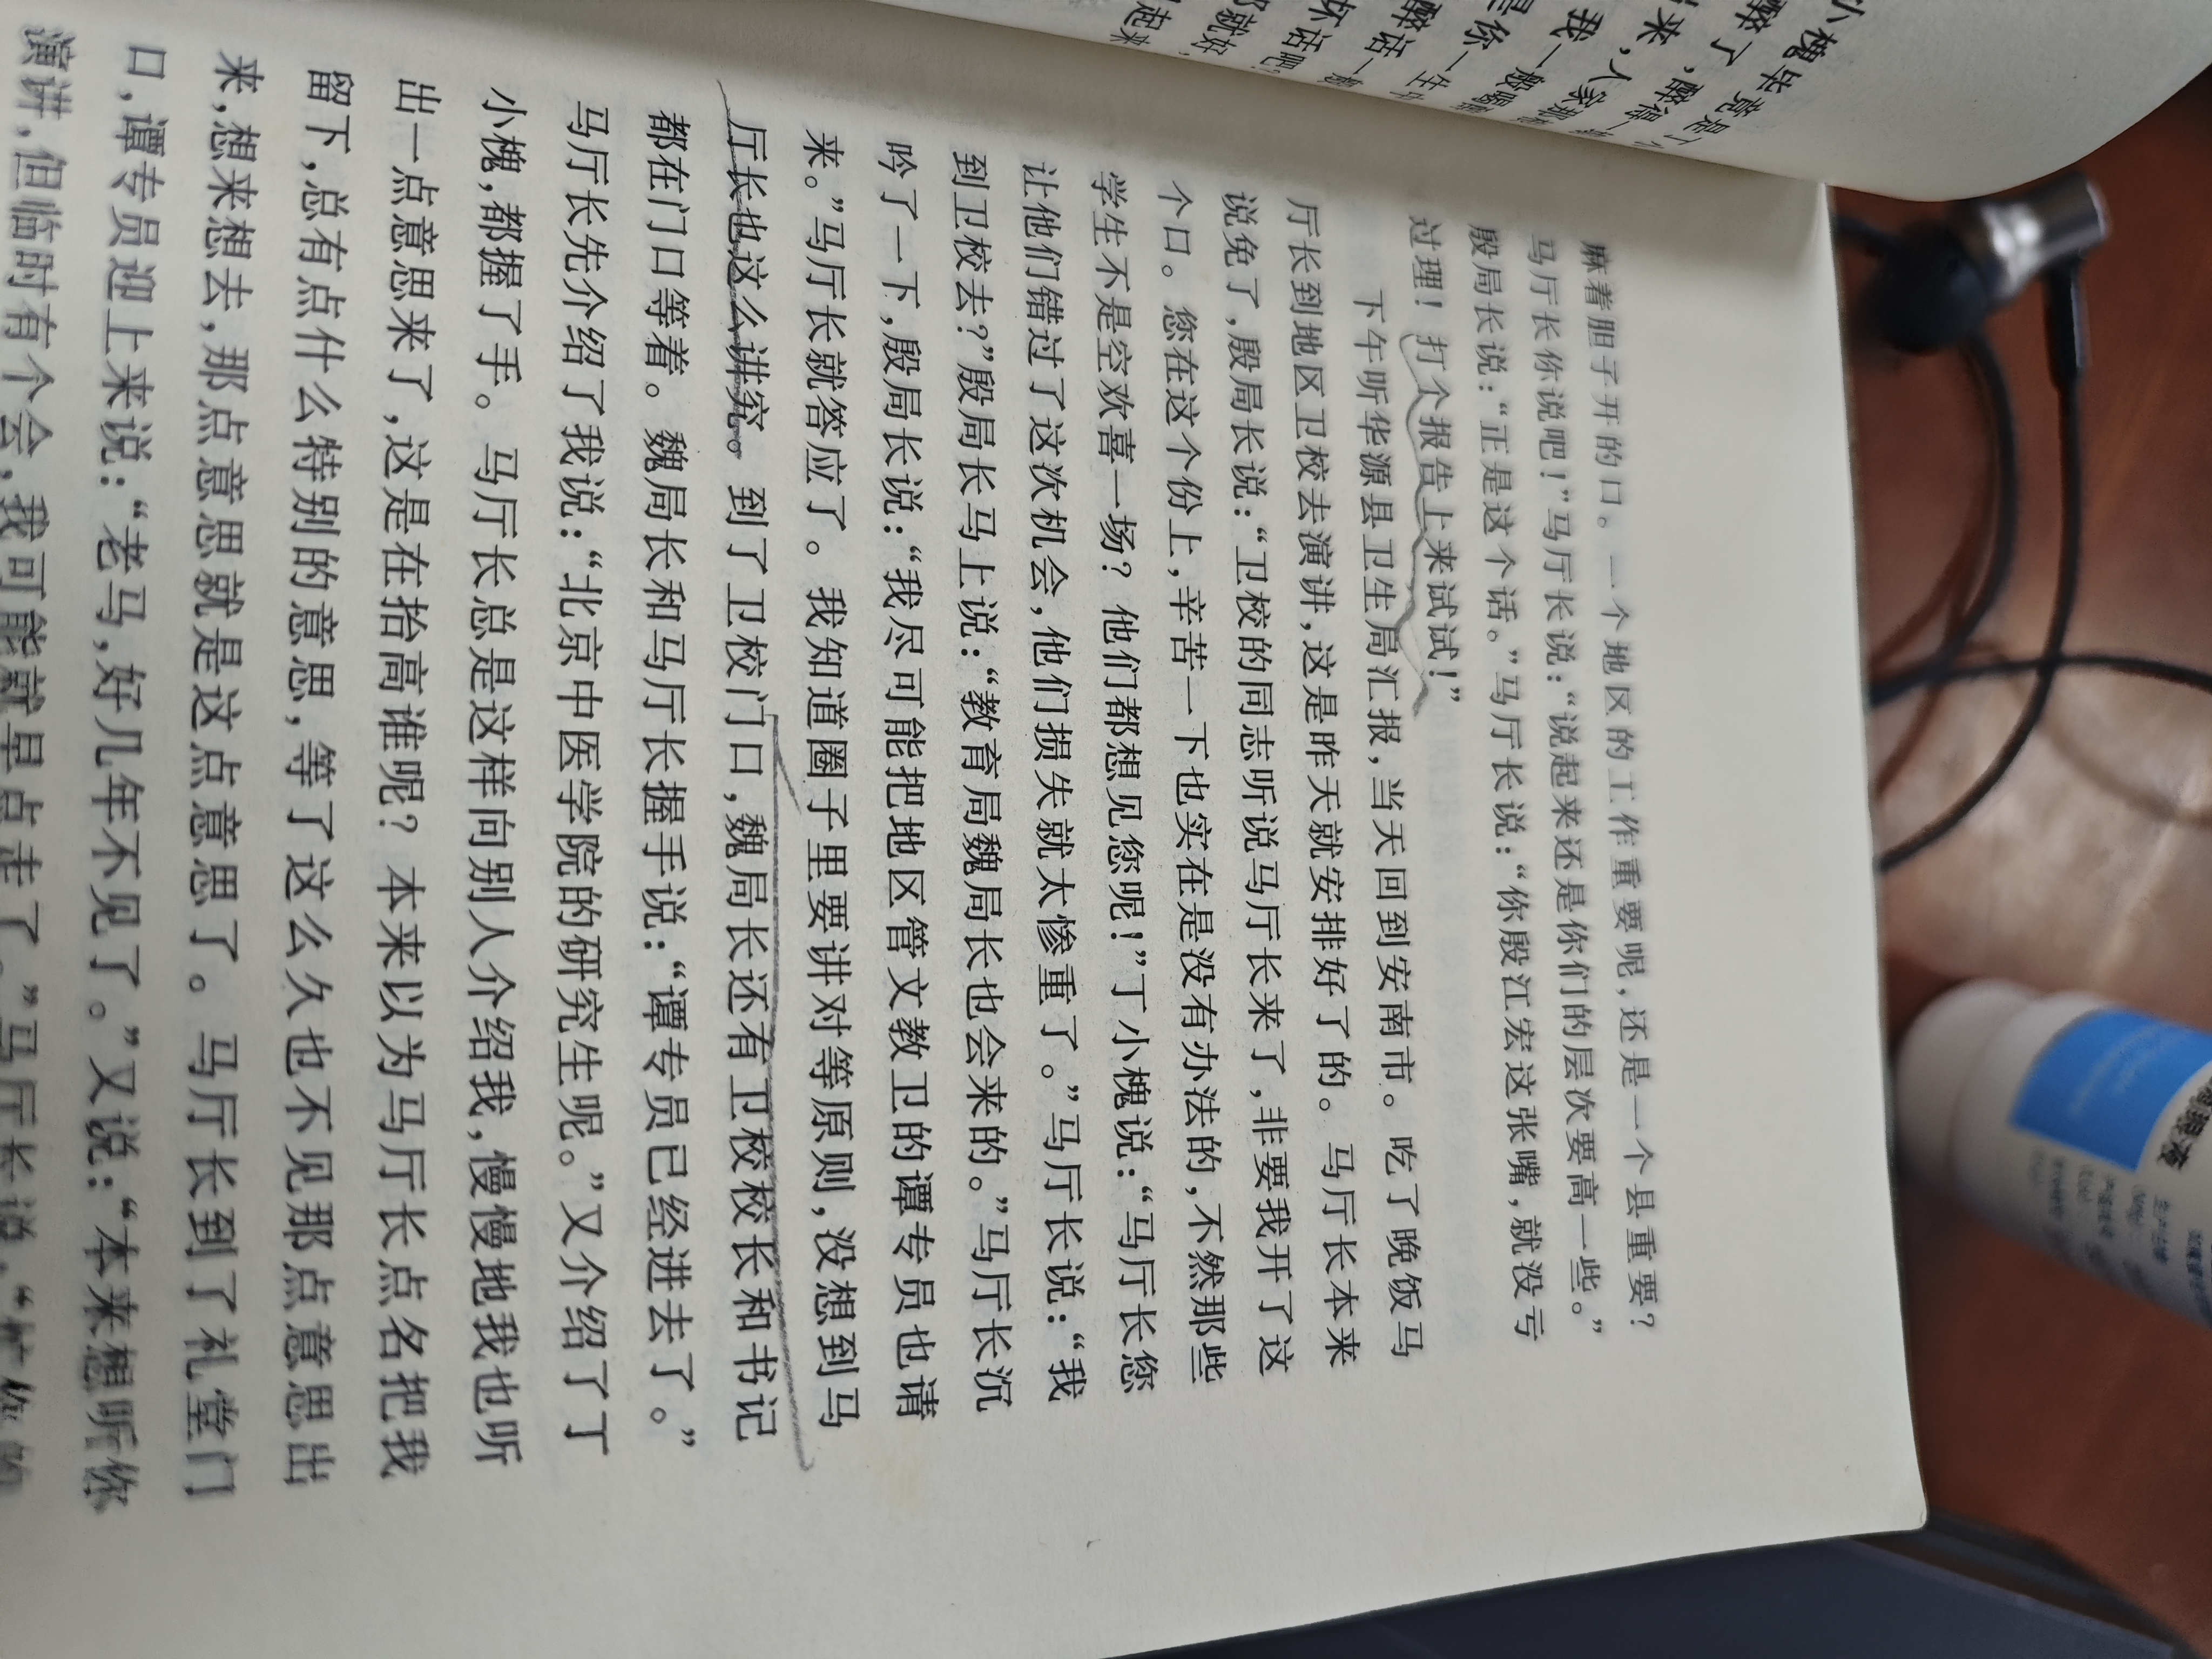 麻着胆子开的口。一个地区的工作重要呢,还是一个县重要?
马厅长你说吧!”马厅长说:“说起来还是你们的层次要高一些。”
殷局长说:“正是这个话。”马厅长说:“你殷江宏这张嘴,就没亏
过理!打个报告上来试试!”
下午听华源县卫生局汇报,当天回到安南市。吃了晚饭马
厅长到地区卫校去演讲,这是昨天就安排好了的。马厅长本来
说免了,殷局长说:“卫校的同志听说马厅长来了,非要我开了这
个口。您在这个份上,辛苦一下也实在是没有办法的,不然那些
学生不是空欢喜一场?他们都想见您呢!”丁小槐说:“马厅长您
让他们错过了这次机会,他们损失就太惨重了。”马厅长说:“我
到卫校去?”殷局长马上说:“教育局魏局长也会来的。”马厅长沉
吟了一下,殷局长说:“我尽可能把地区管文教卫的谭专员也请
来。”马厅长就答应了。我知道圈子里要讲对等原则,没想到马
厅长也这么讲究。到了卫校门口,魏局长还有卫校校长和书记
都在门口等着。魏局长和马厅长握手说:“谭专员已经进去了。”
马厅长先介绍了我说:“北京中医学院的研究生呢。”又介绍了丁
小槐,都握了手。马厅长总是这样向别人介绍我,慢慢地我也听
出一点意思来了,这是在抬高谁呢?本来以为马厅长点名把我
留下,总有点什么特别的意思,等了这么久也不见那点意思出
来,想来想去,那点意思就是这点意思了。马厅长到了礼堂门
口,谭专员迎上来说:“老马,好几年不见了。”又说:“本来想听你
演讲,但临时有个会,我可能就早点走了。”马厅长说:“忙你的
小槐毕竟是